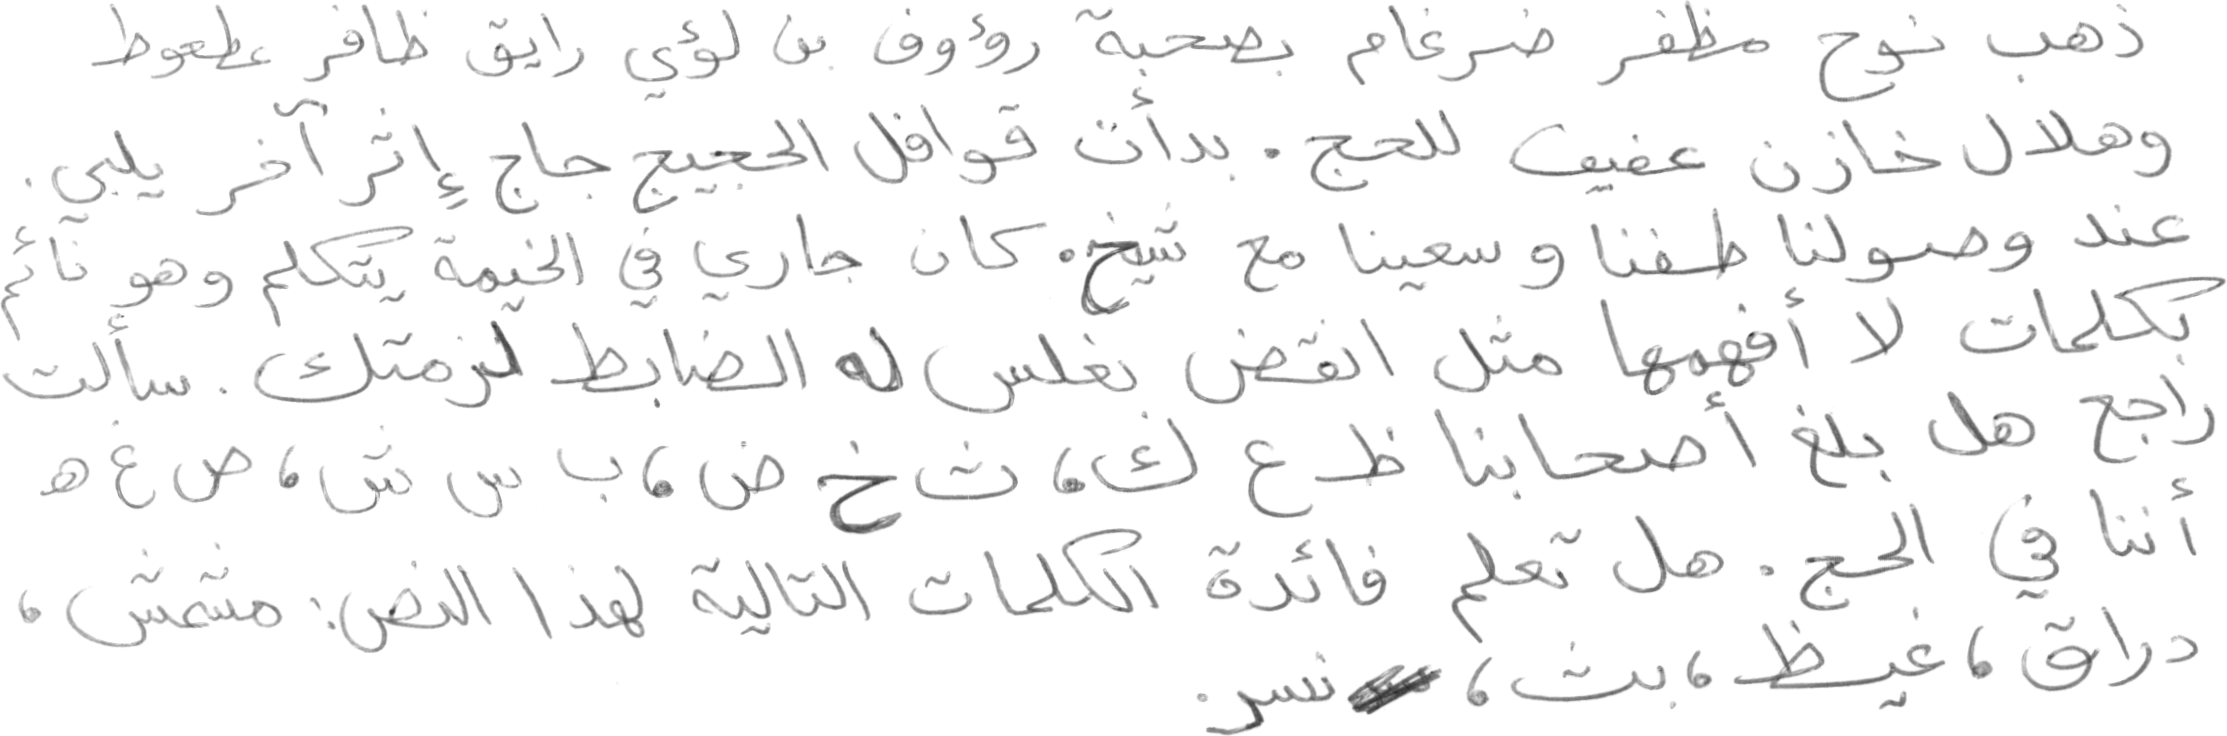 ذهب نوح مظفر ضرغام بصحبة رؤوف بن لؤي رايق ظافر عطعوط
وهلال خازن عفيف للحج. بدأت قوافل الحجيج حاج إثر آخر يلبي.
عند وصولنا طفنا وسعينا مع شيخ. كان جاري في الخيمة يتكلم وهو نائم
بكلمات لا أفهمها مثل انقض نغلس له الضابط لزمتك. سألت
راجح هل بلغ أصحابنا ظ ع ك، ث خ ض، ب س ش، ص غ ه
أننا في الحج. هل تعلم فائدة الكلمات التالية لهذا النص: مشمش،
دراق، غيظ، بث، نسر.